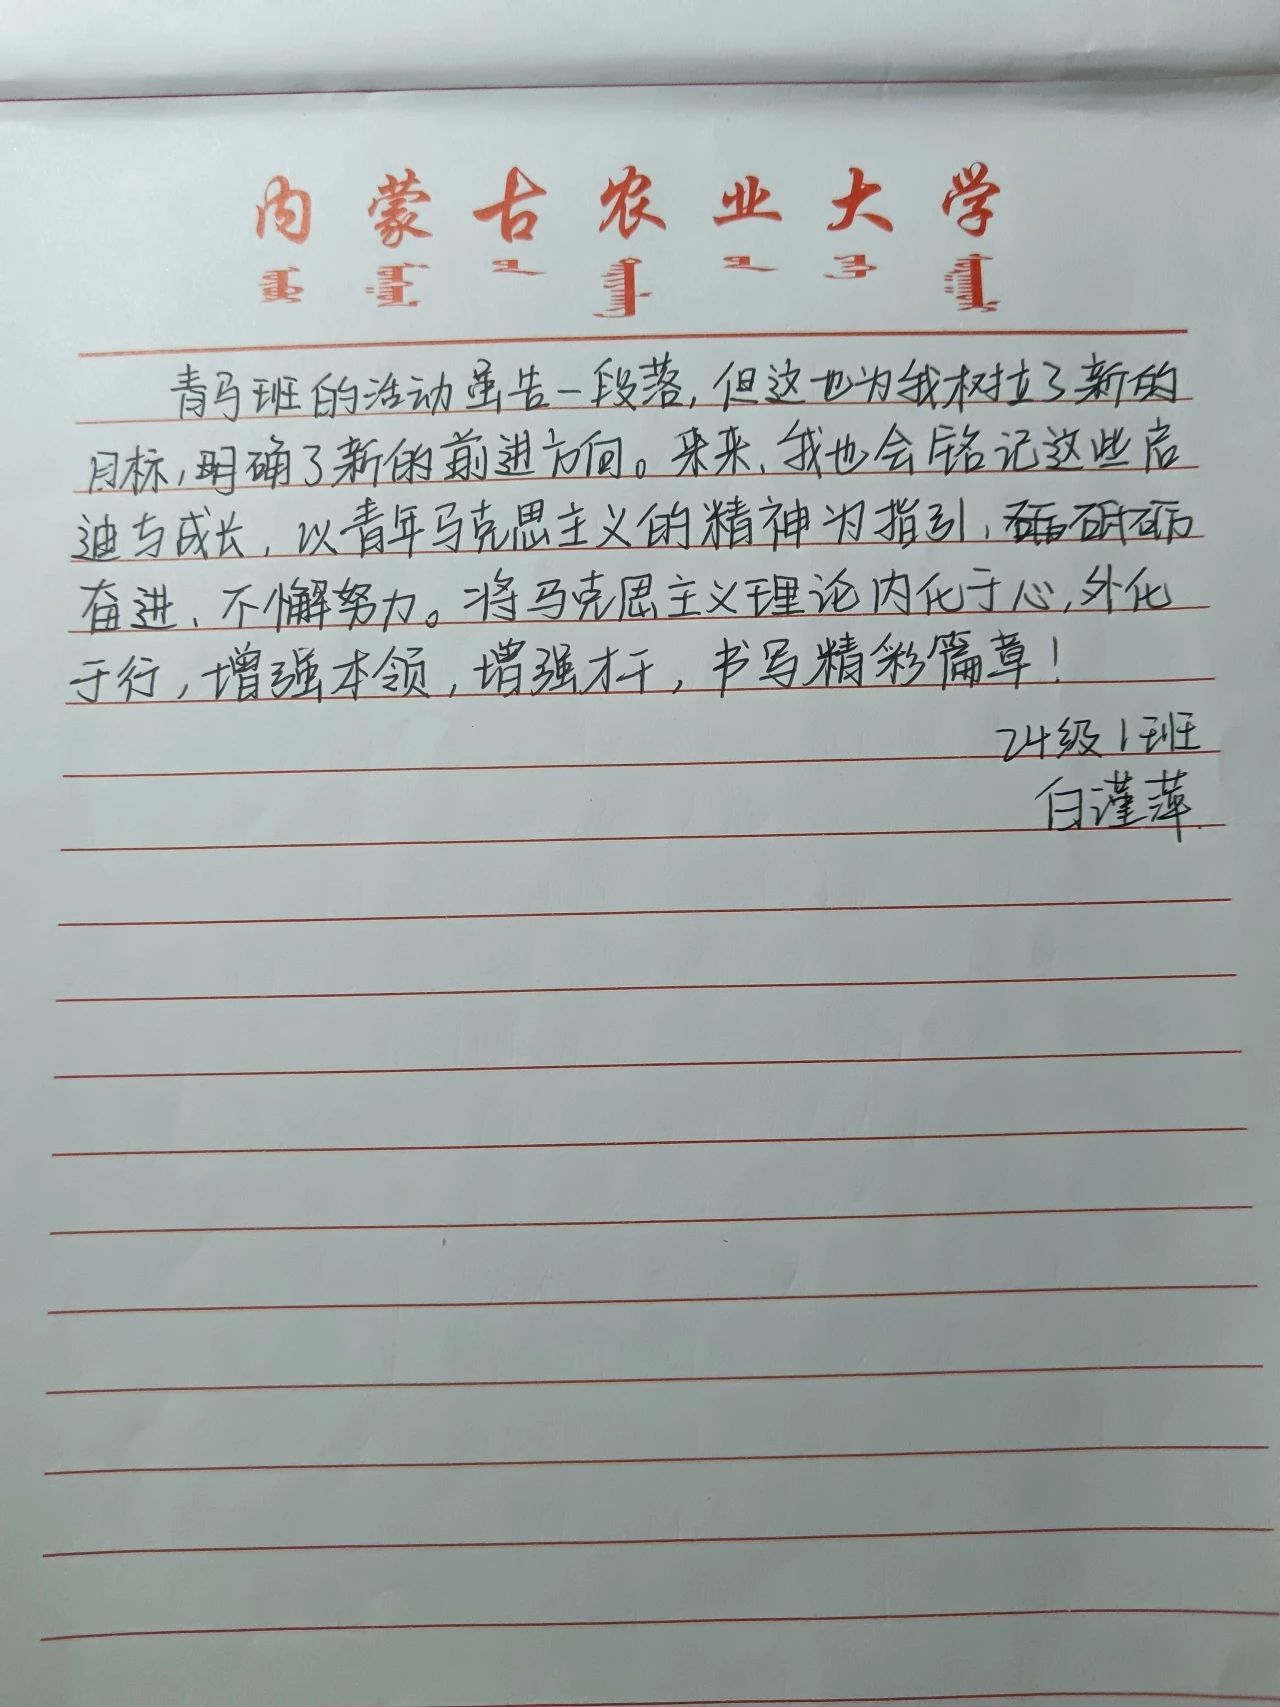 内蒙古农业大学
青马班的活动虽告一段落，但这也为我树立了新的
目标，明确了新的前进方向。未来，我也会铭记这些启
迪与成长，以青年马克思主义的精神为指引，砥砺
奋进、不懈努力。将马克思主义理论内化于心，外化
于行，增强本领，增强才干，书写精彩篇章！
24级1班
白瑾萍